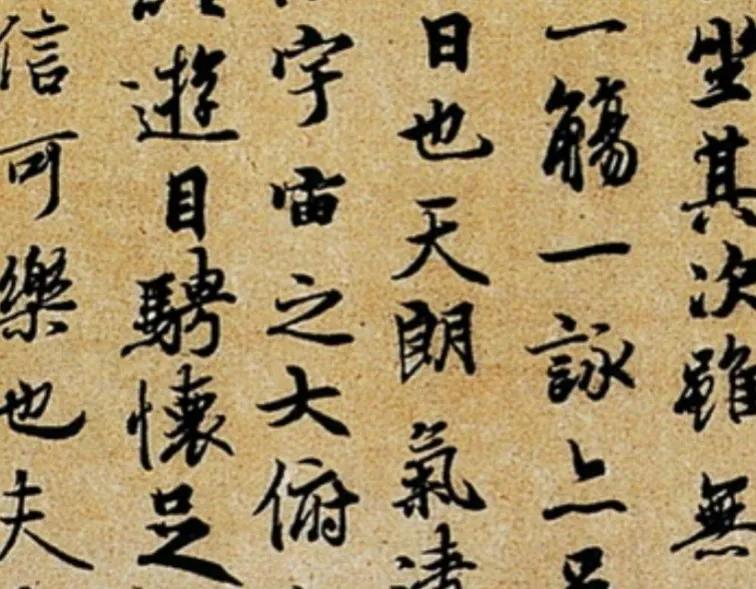 坐其次雖無
一觴一詠亦足
日也天朗氣清
宇宙之大俯
遊目騁懷足
信可樂也夫